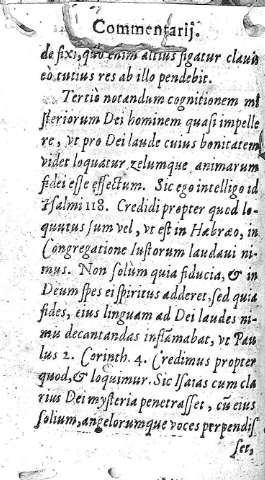 Commentarij.
de fixi, quo enim altius figatur clauus
eò tutius res ab illo pendebit.
Tertiò notandum cognitionem mi
steriorum Dei hominem quasi impelle
re, vt pro Dei laude cuius bonitatem
videt loquatur zelumque animarum
fidei esse effectum. Sic ego intelligo id
Psalmi 118. Credidi propter quod lo-
quutus sum vel, vt est in Hæbræo, in
Congregatione Iustorum laudaui ni-
mus. Non solum quia fiducia, & in
Deum spes ei spiritus adderet, sed quia
fides, eius linguam ad Dei laudes ni-
mis decantandas inflāmabat, vt Pau
lus 2. Corinth. 4. Credimus propter
quod, & loquimur. Sic Isaias cum cla
rius Dei mysteria penetrasset, cū eius
solium, angelorumque voces perpendis
set,